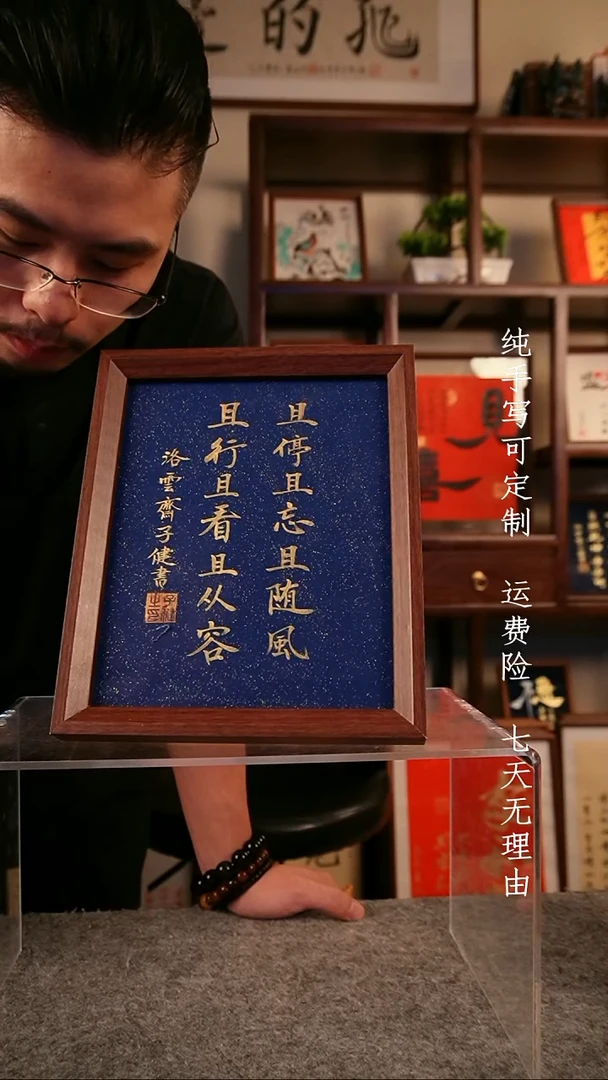 且停且忘且随風
且行且看且从容
洛雲齋子健書
纯手写可定制 运费险 七天无理由
的